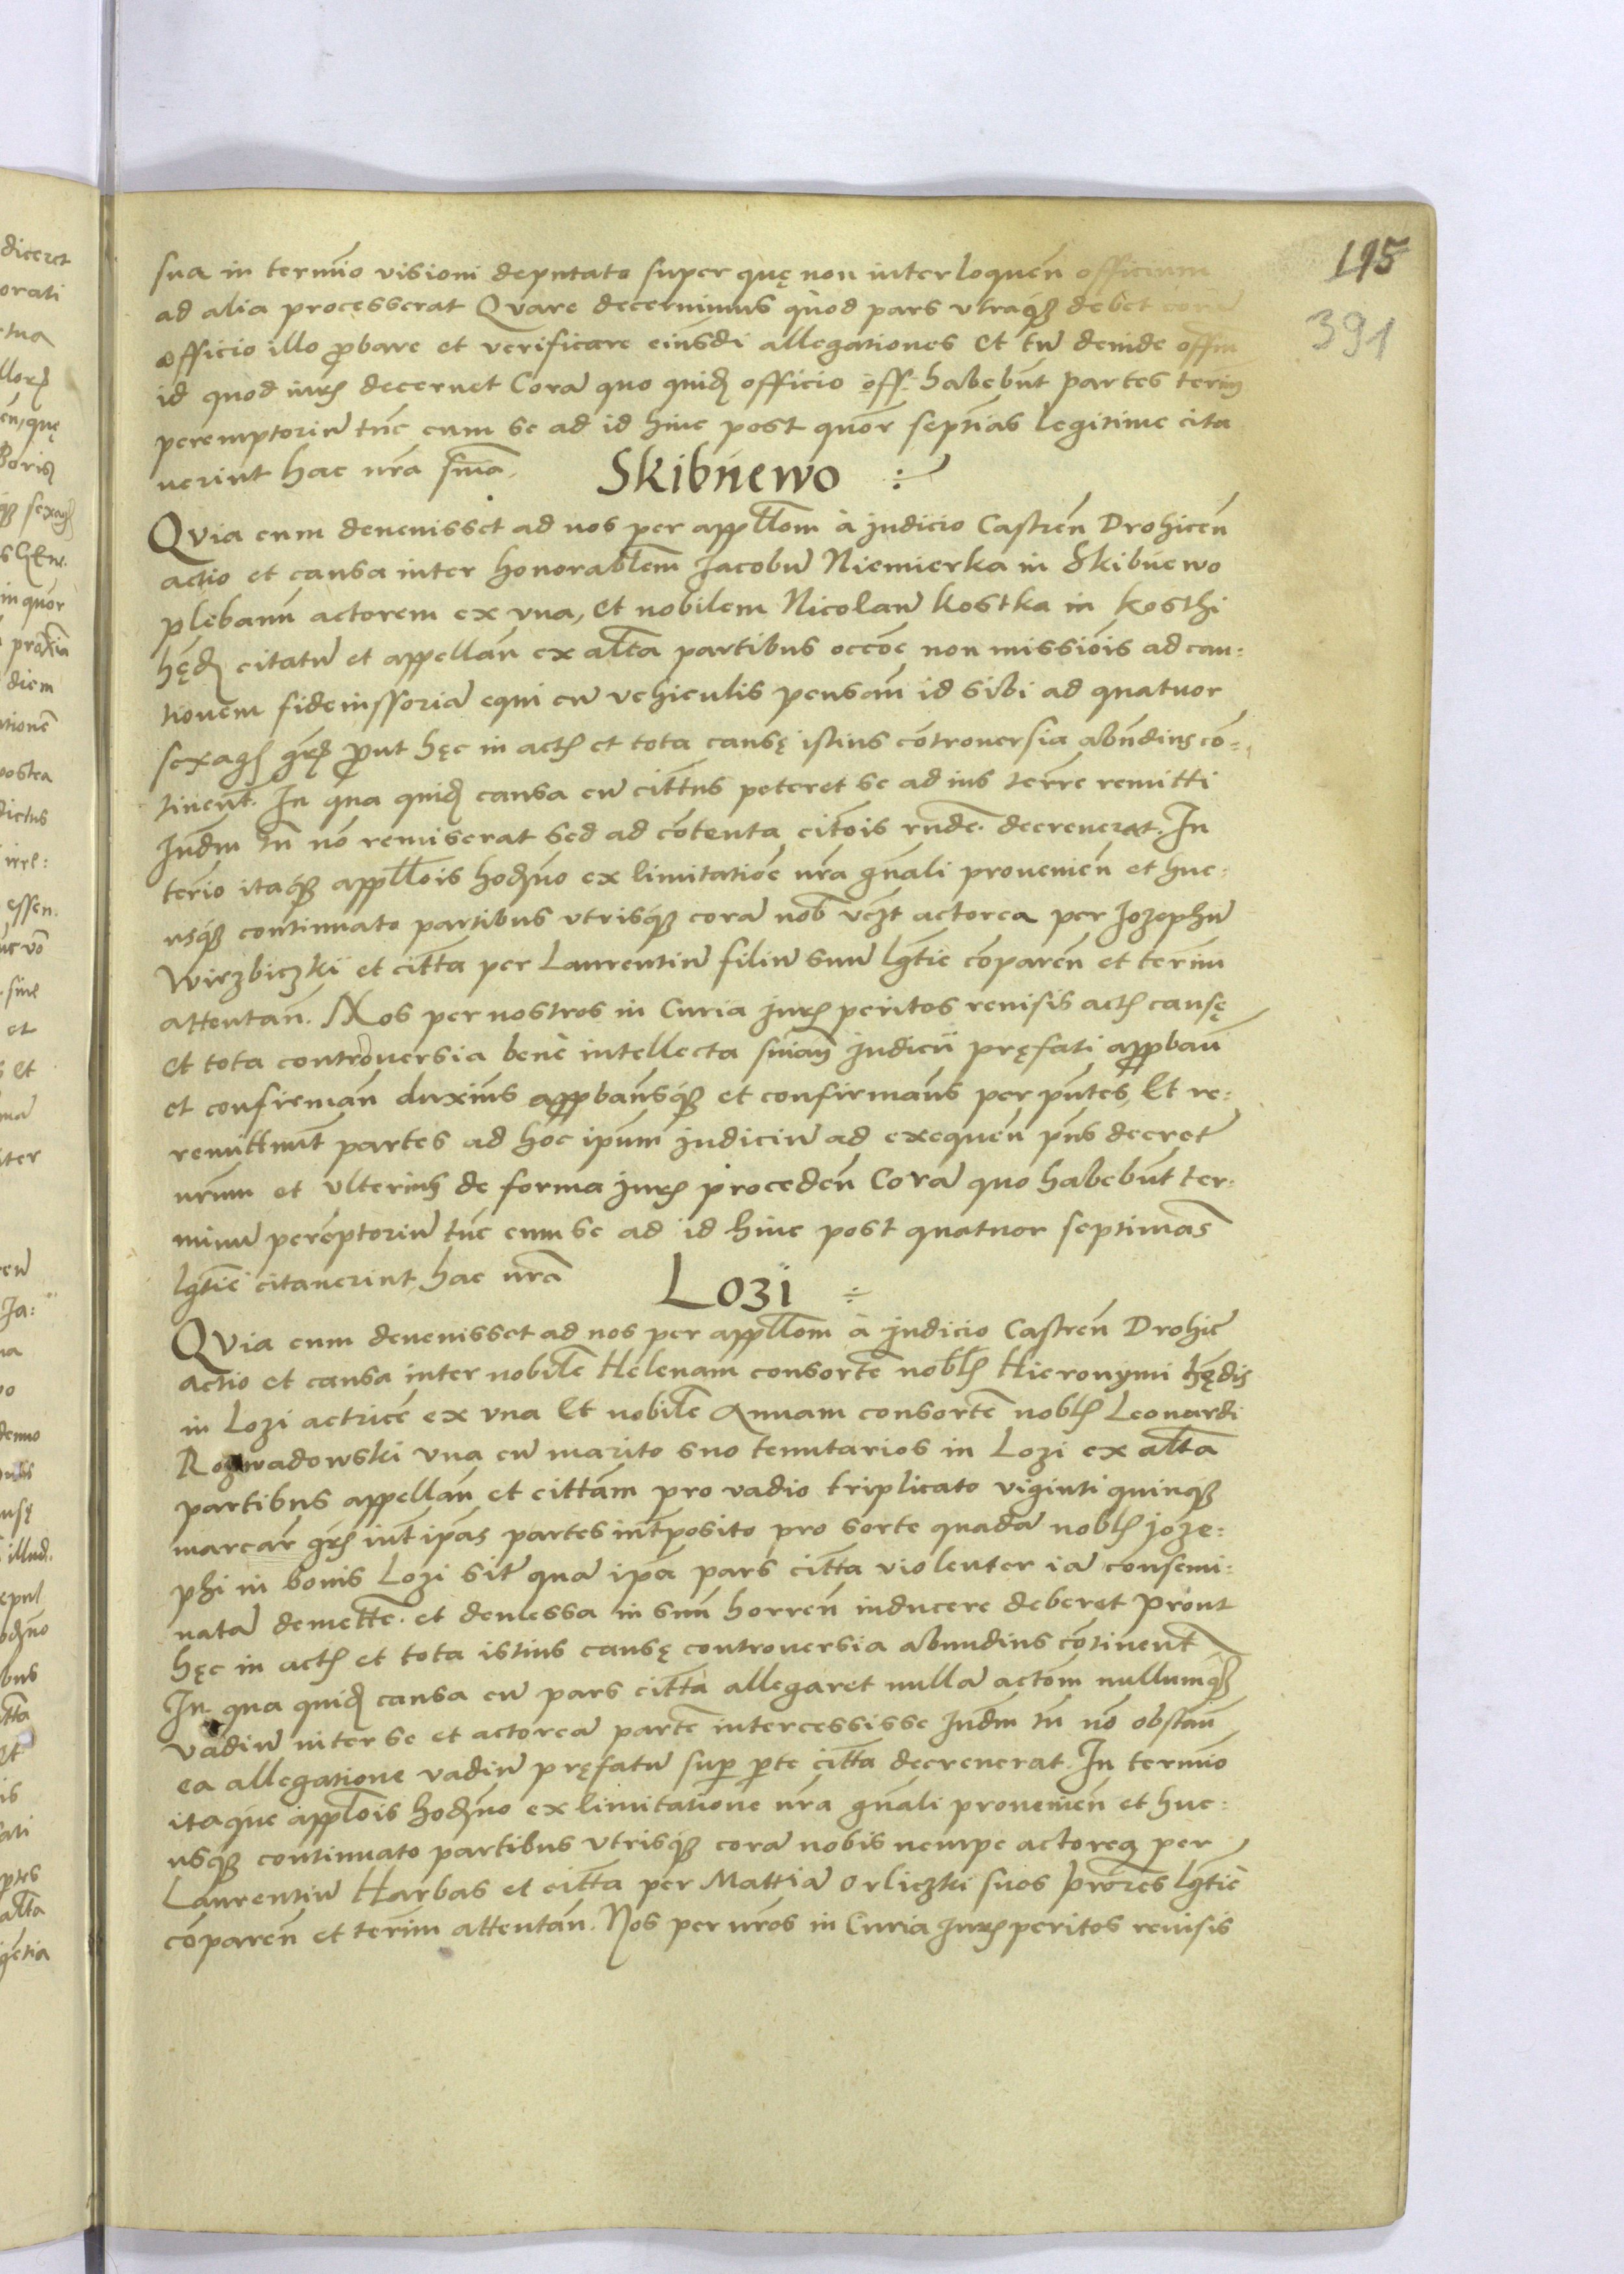 195
391
sua in termīo visioni deputato super quę non interloquen̄ officium
ad alia processerat Qvare decernimus quod pars vtraq₃ debet corā
officio illo ꝓbare et verificare eiusdi allegationes et tn̄ deinde offm̄
id quod iuris decernet Corā quo quid officio off. habebūt partes termī
peremptoriū tūc cum se ad id hinc post quōr septīas legitime cita
uerint hac nrā sn̄ia.
Skibnewo ÷
Qvia cum deuenisset ad nos per appll̄om à judicio Castren̄ Drohicen̄
actio et causa inter honorabl̄em Jacobū Niemierka in Skibnewo
plebanū actorem ex vna, et nobilem Nicolaū Kostka in Kosthi
hęd citatū et appellan̄ ex altā partibus occōe non missiōis ad cau-
tionem fideiussoriā equi cū vehiculis pensam̄ id sibi ad quatuor
sexag gr̄ ꝓut hęc in actis et tota causę istius cōtrouersia abūdius cō-
tinent̄. In qua quid causa cū citt̄us peteret se ad ius terr̄e remitti
Judm̄ tn̄ nō remiserat sed ad cōtenta citōis rn̄de. decreuerat. In
termīo itaq₃ appll̄ois hod̄no ex limitatiōe nrā gn̄ali prouenien̄ et huc-
usq₃ continuato partibus vtrisq₃ corā nob̄ vcz̄t actorea per Jozephū
Wirzbiczkï et citt̄a per Laurentiū filiū suū lḡtie cōparen̄ et termī
attentan̄. Nos per nostros in Curia juris peritos reuisis actis causę
et tota controuersia benè intellecta sn̄iam judicii pręfati appban̄
et confirman̄ duxim̄us appban̄usq₃ et confirman̄us per pn̄tes, Et re-
remittmūt partes ad hoc ipsum judiciū ad exequen̄ pn̄s decretū
nrūm et vlterius de forma juris proceden̄ Corā quo habebūt ter-
minū perēptoriū tūc cum se ad id hinc post quatuor septimas
lḡtie citauerint, hac nrā
Lozi ÷
Qvia cum deuenisset ad nos per appll̄om à judicio Castren̄ Drohic̄
actio et causa inter nobilē Helenam consortē nobl̄is Hieronymi hędis
in Lozi actricē ex vna Et nobilē Annam consortē nobl̄is Leonardi
Rozwadowski vna cū marito suo tenutarios in Lozi ex altā
partibus appellan̄ et cittām pro vadio triplicato viginti quinq₃
marcar̄ gr̄ int̄ ipās partes int̄posito pro sorte quadā nobl̄is Joze-
phi in bonis Lozi sit̄ quā ipā pars citt̄a violenter iā consemi-
natā demett̄e. et demessa in suū horren̄ inducere deberet prout
hęc in actis et tota istius causę controuersia abundius cōtinent̄
In qua quid causa cū pars cittā allegaret nullā actōm nullumq₃
vadiū inter se et actoreā partē intercessisse Judm̄ tn̄ nō obstan̄
ea allegatione vadiū pręfatū sup̄ pte citt̄a decreuerat. In termīo
itaque appll̄ois hod̄no ex limitatione nrā gn̄ali prouenien̄ et huc-
usq₃ continuato partibus vtrisq₃ corā nobis nempe actorea per
Laurentiū Harbas et citt̄a per Mattiā Orliczki suos prōres lḡtie
cōparen̄ et termī attentan̄. Nos per nrōs in Curia Juris peritos reuisis